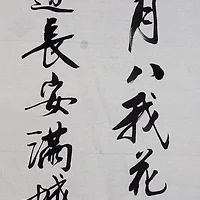 月八我花
長安滿城